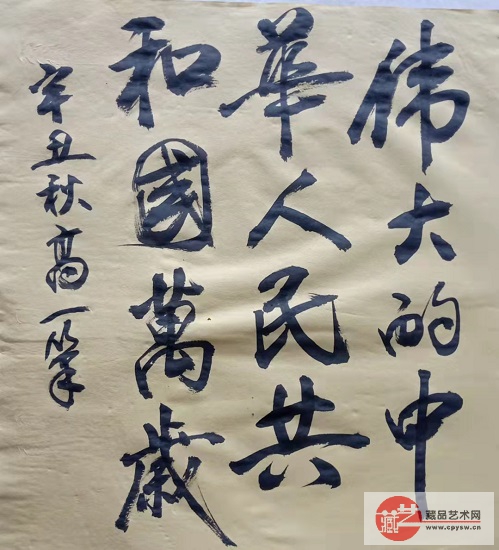 伟大的中
華人民共
和國萬歲
辛丑秋高一筆
藏艺
藏品艺术网
www.cpysw.cn